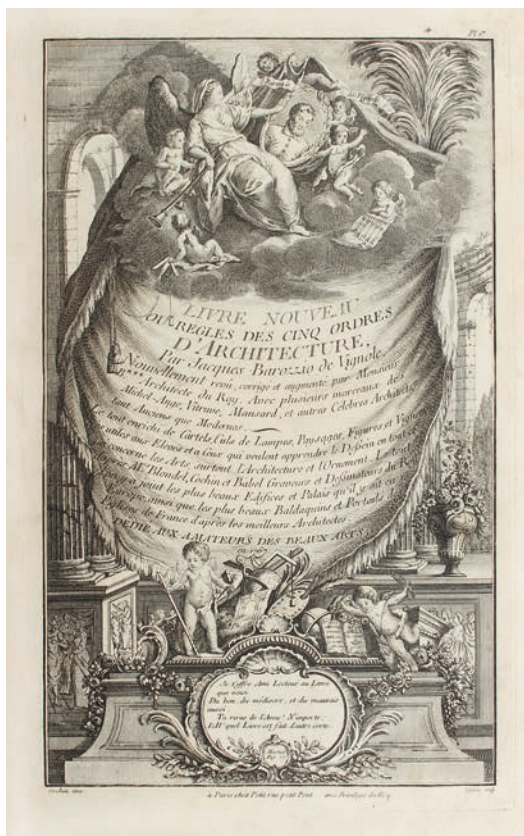 LIVRE NOUVEAU
OU REGLES DES CINQ ORDRES
D'ARCHITECTURE,
Par Jacques Barozzio de Vignole.
Nouvellement revû, corrigé et augmenté par Monsieur
B*** Architecte du Roy, Avec plusieurs morceaux de
Michel-Ange, Vitruve, Mansard, et autres Célebres Architectes
tant Anciens que Modernes.
Le tout enrichi de Cartels, Culs de Lampes, Paysages, Figures et Vignettes
utiles aux Eleves et a Ceux qui veulent apprendre le Dessein en tout ce qui
concerne les Arts, surtout l'Architecture et l'Ornement. Le tout
d'après M.rs Blondel, Cochin et Babel Graveurs et Dessinateurs du Roy.
on y a joint les plus beaux Edifices et Palais qu'il y ait en
Europe, ainsi que les plus beaux Baldaquins et Portails des
Eglises de France d'après les meilleurs Architectes.
DEDIÉ AUX AMATEURS DES BEAUX ARTS.
en 1767
Je t'offre Ami Lecteur un Livre
que nous
Du bon, du médiocre, et du mauvais
aussi
Tu ris de l'Aveu! N'importe;
Est quel Livre est fait d'autre sorte.
Martial
Cochin inv.
à Paris chez Petit rue petit Pont
avec Privilege du Roy